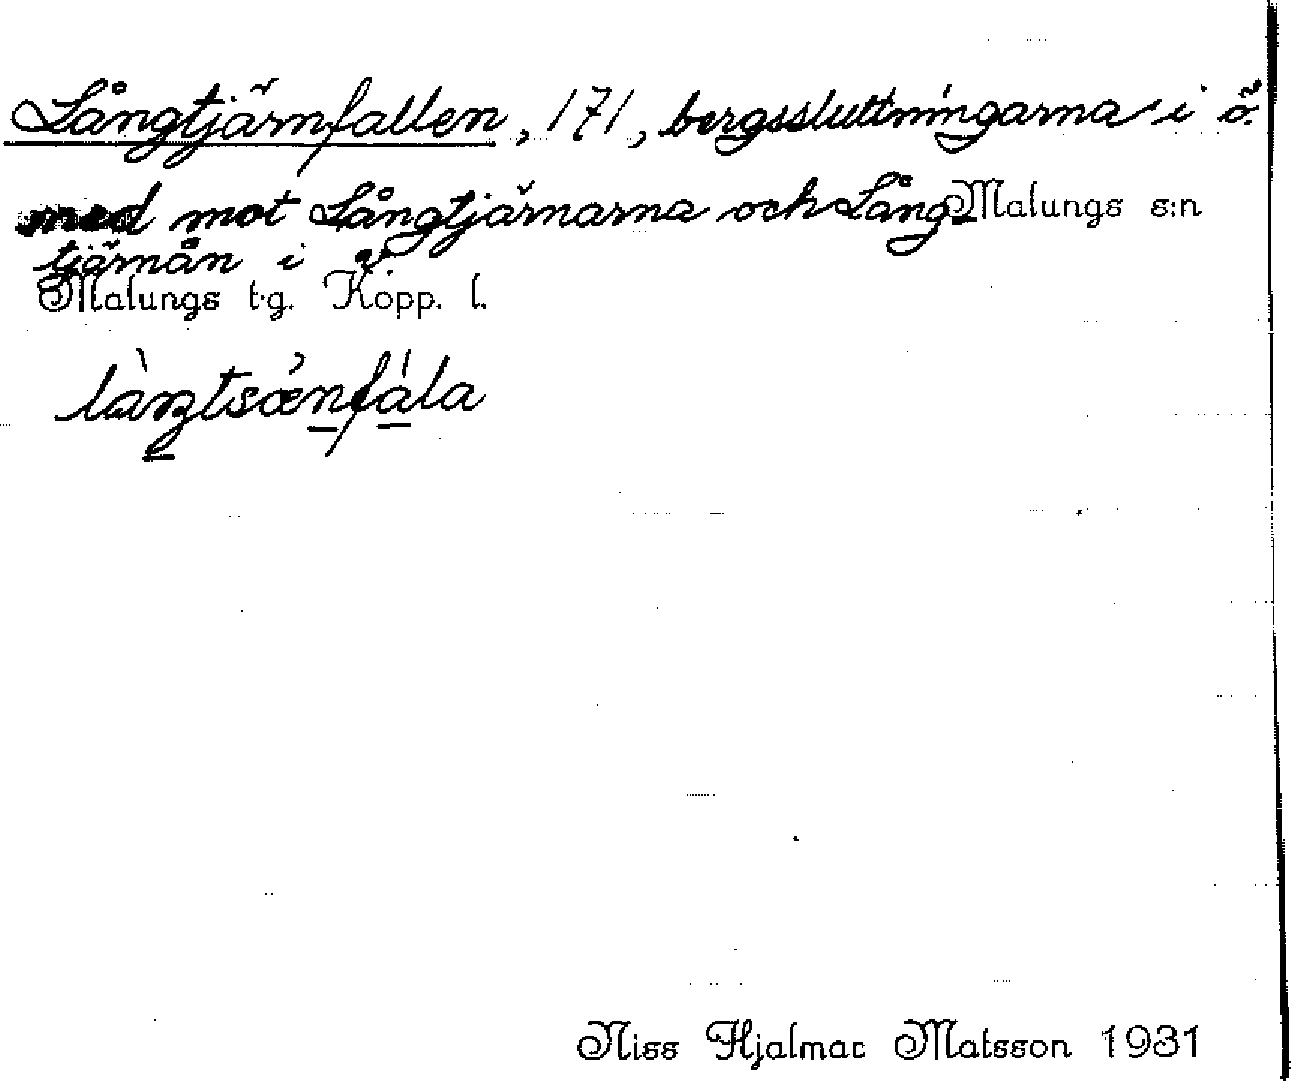 Långtjärnfallen, 171, bergssluttningarna i ö.
ned mot Långtjärnarna och Lång- Malungs s:n
tjärnån i ö.
Malungs t.g. Kopp. l.
làŋtsæ̀nfála
Niss Hjalmar Matsson 1931